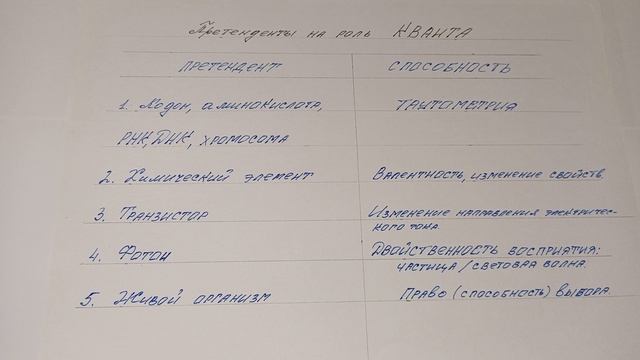 Претенденты на роль КВАНТА
ПРЕТЕНДЕНТ СПОСОБНОСТЬ
1. Кодон, аминокислота, ТАУТОМЕТРИЯ
РНК, ДНК, хромосома
2. Химический элемент Валентность, изменение свойств.
3. Транзистор Изменение направления электричес-
кого тока.
4. Фотон Двойственность восприятия:
частица / световая волна.
5. Живой организм Право (способность) выбора.